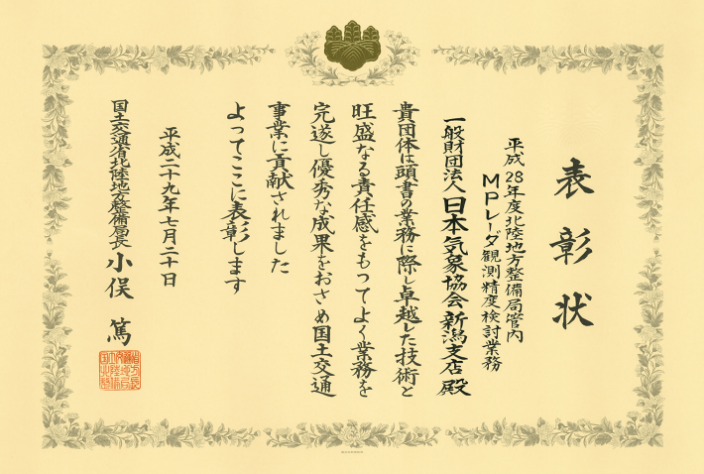 表彰状
平成28年度北陸地方整備局管内
MPレーダ観測精度検討業務
一般財団法人日本気象協会新潟支店殿
貴団体は頭書の業務に際し卓越した技術と
旺盛なる責任感をもってよく業務を
完遂し優秀な成果をおさめ国土交通
事業に貢献されました
よってここに表彰します
平成二十九年七月二十日
国土交通省北陸地方整備局長
小俣篤